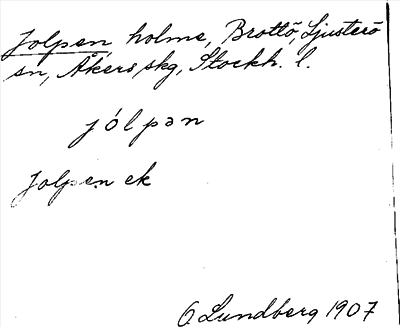 Jolpen holme, Brottö, Ljusterö
sn, Åkers skg, Stockh. l.
jólpən
Jolpen ek
O Lundberg 1907